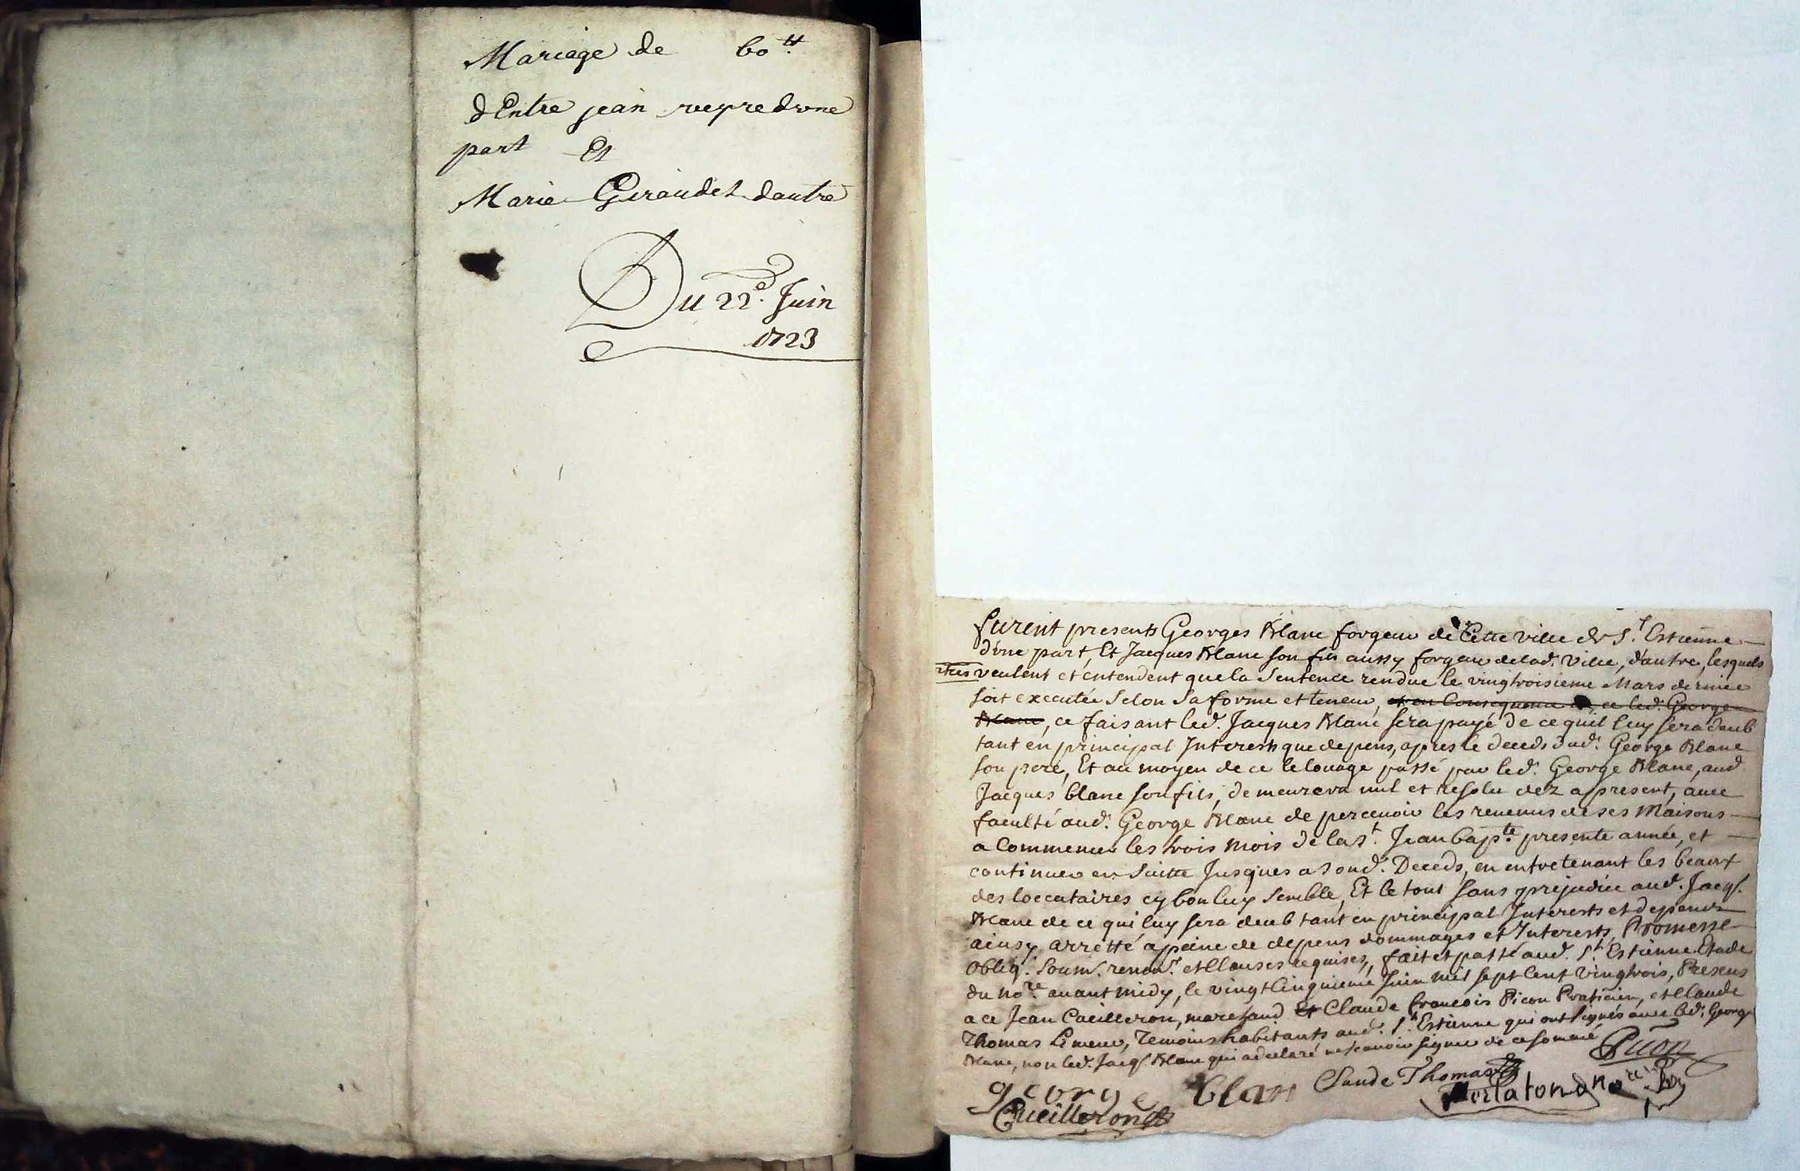 Mariage de 60ᵗᵗ
dEntre jean reyre dvne
part Et
Marie Giraudet dautre
Du 22ᵉ. Juin
1723
furent presents Georges Blanc forgeur de Cette ville de Sᵗ. Estienne
dvne part, Et Jacques Blanc son fils aussy forgeur de lad. ville, d'autre, lesquels
veulent et entendent que la Sentence rendue le vingtroisieme Mars dernier
soit executée selon sa forme et teneur, et en Consequence ce led. George
Blanc, ce faisant led. Jacques Blanc sera payé de ce quil luy sera deub
tant en principal Interests que depens, apres le deceds dud. George Blanc
son pere, Et au moyen de ce le louage passé par led. George Blanc, aud.
Jacques blanc son fils, demeurera nul et resolu dez apresent, avec
faculté aud. George Blanc de percevoir les revenus de ses Maisons
a Commencer les trois mois de la sᵗ. Jean bapᵗᵉ presente année, et
continuer en suitte Jusques a sond. Deceds, en entretenant les beaux
des loccataires sy bon luy semble, Et le tout sans prejudice aud. Jacq.
Blanc de ce qui luy sera deub tant en principal Interests et depens
ainsy arretté a peine de depens dommages et Interests, Promesse
obligᵒ. soumᵒ. renonᵒ. et Clauses requises, fait et passé aud. Sᵗ. Estienne Etude
du noʳᵉ. avant midy, le vingt Cinquieme Juin mil sept Cent vingtrois, Presens
a ce Jean Cueilleron, marchand Et Claude francois Picon Praticien, et Claude
Thomas Limeur, Temoins habitants aud. Sᵗ. Estienne qui ont signés avec led. George
Blanc, non led. Jacq. Blanc qui a declaré ne scavoir signer de ce sommé
Picon
george blan Claude Thomas
Cueilleron